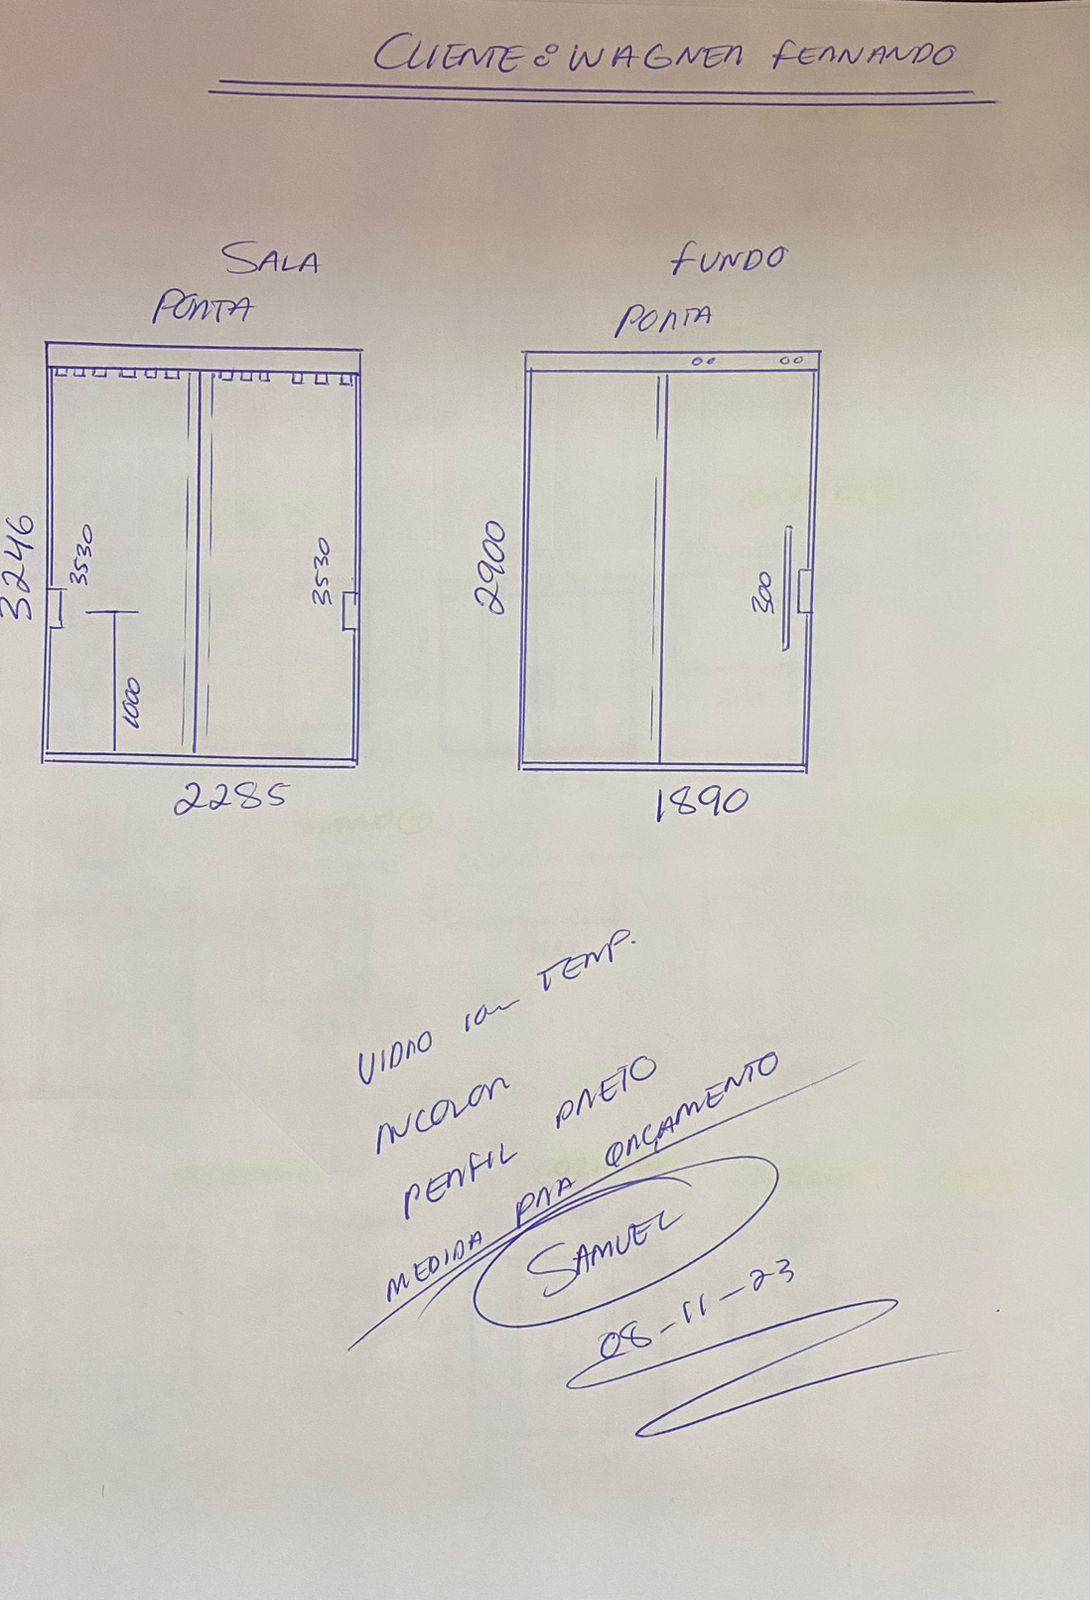 CLIENTE: WAGNER FERNANDO
SALA
PORTA
FUNDO
PORTA
3246
3530
3530
1000
2285
2900
300
1890
VIDRO 10m TEMP.
INCOLOR
PERFIL PRETO
MEDIDA PRA ORÇAMENTO
SAMUEL
08-11-23